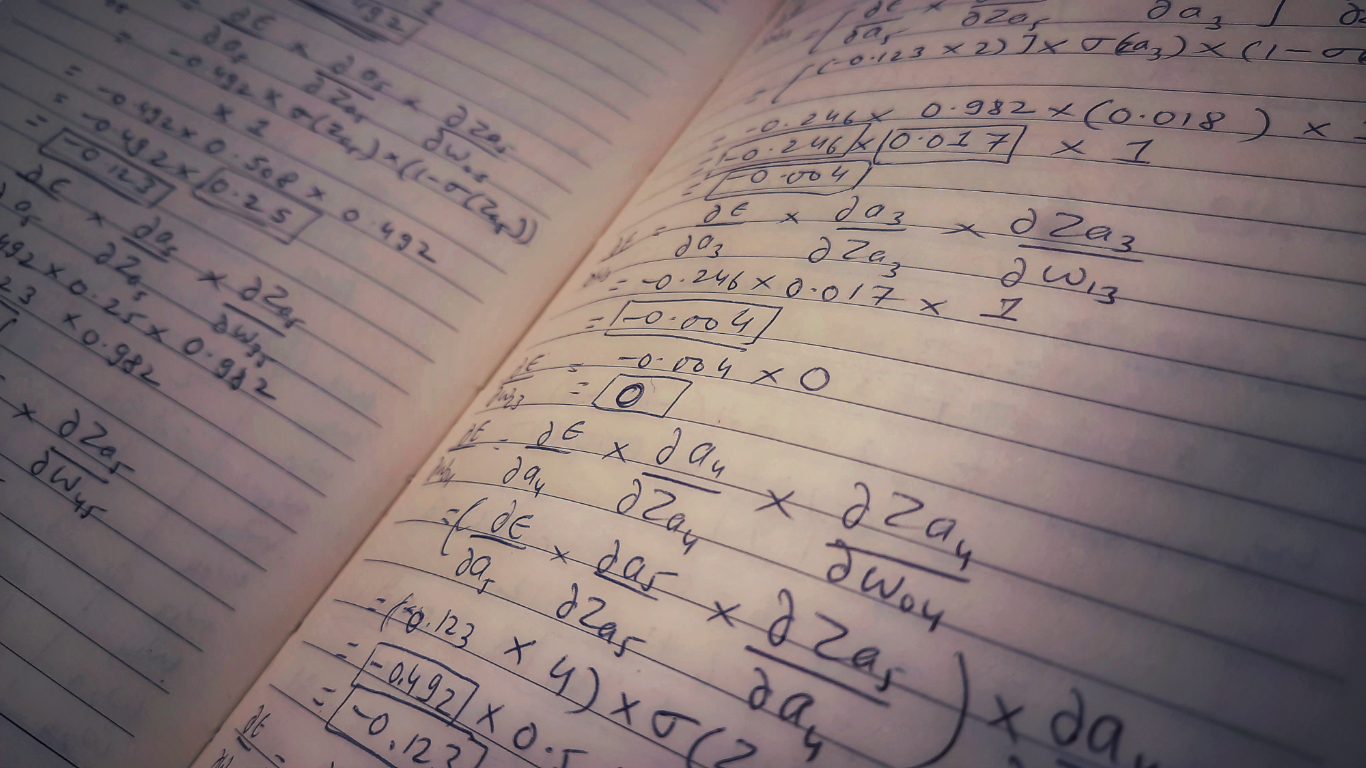 = ∂ϵ/∂a₅ × ∂a₅/∂Za₅ × ∂Za₅/∂w₀₅
= -0.492 × σ(Za₅) × (1-σ(Za₅))
× 1
= -0.492 × 0.508 × 0.492
= -0.492 × 0.25
= -0.123
∂ϵ/∂a₅ × ∂a₅/∂Za₅ × ∂Za₅/∂w₃₅
492 × 0.25 × 0.982
23 × 0.982
× ∂Za₅/∂w₄₅
∂ϵ/∂a₅ × ∂Za₅ ∂a₃ ]
= [(-0.123 × 2)] × σ(a₃) × (1-σ(
= -0.246 × 0.982 × (0.018) ×
= -0.246 × 0.017 × 1
= -0.004
= ∂ϵ/∂a₃ × ∂a₃/∂Za₃ × ∂Za₃/∂w₁₃
= -0.246 × 0.017 × 1
= -0.004
∂ϵ/∂w₂₃ = -0.004 × 0
= 0
∂ϵ/∂w₀₄ = ∂ϵ/∂a₄ × ∂a₄/∂Za₄ × ∂Za₄/∂w₀₄
= (∂ϵ/∂a₅ × ∂a₅/∂Za₅ × ∂Za₅/∂a₄) × ∂a₄
= (-0.123 × 4) × σ(Z
= -0.492 × 0.5
= -0.123
∂ϵ =